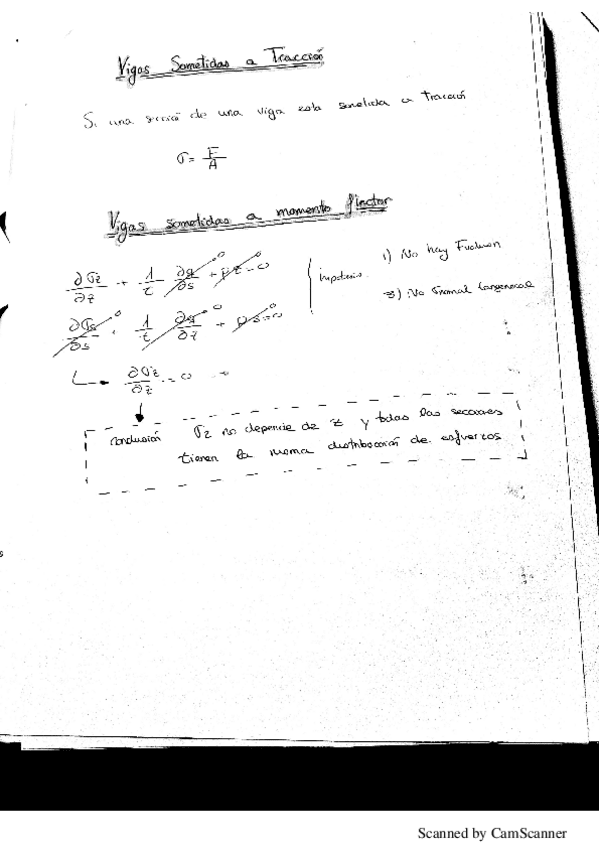 Vigas Sometidas a Tracción
Si una sección de una viga esta sometida a Tracción
σ = F/A
Vigas sometidas a momento flector
∂σz/∂z + 1/t ∂q/∂s + pz = 0
∂σs/∂s + 1/t ∂q/∂z + ps = 0
hipotesis
1) No hay
∂σz/∂z = 0
conclusión σz no depende de z y todas las secciones
tienen la misma distribución de esfuerzos
Scanned by CamScanner